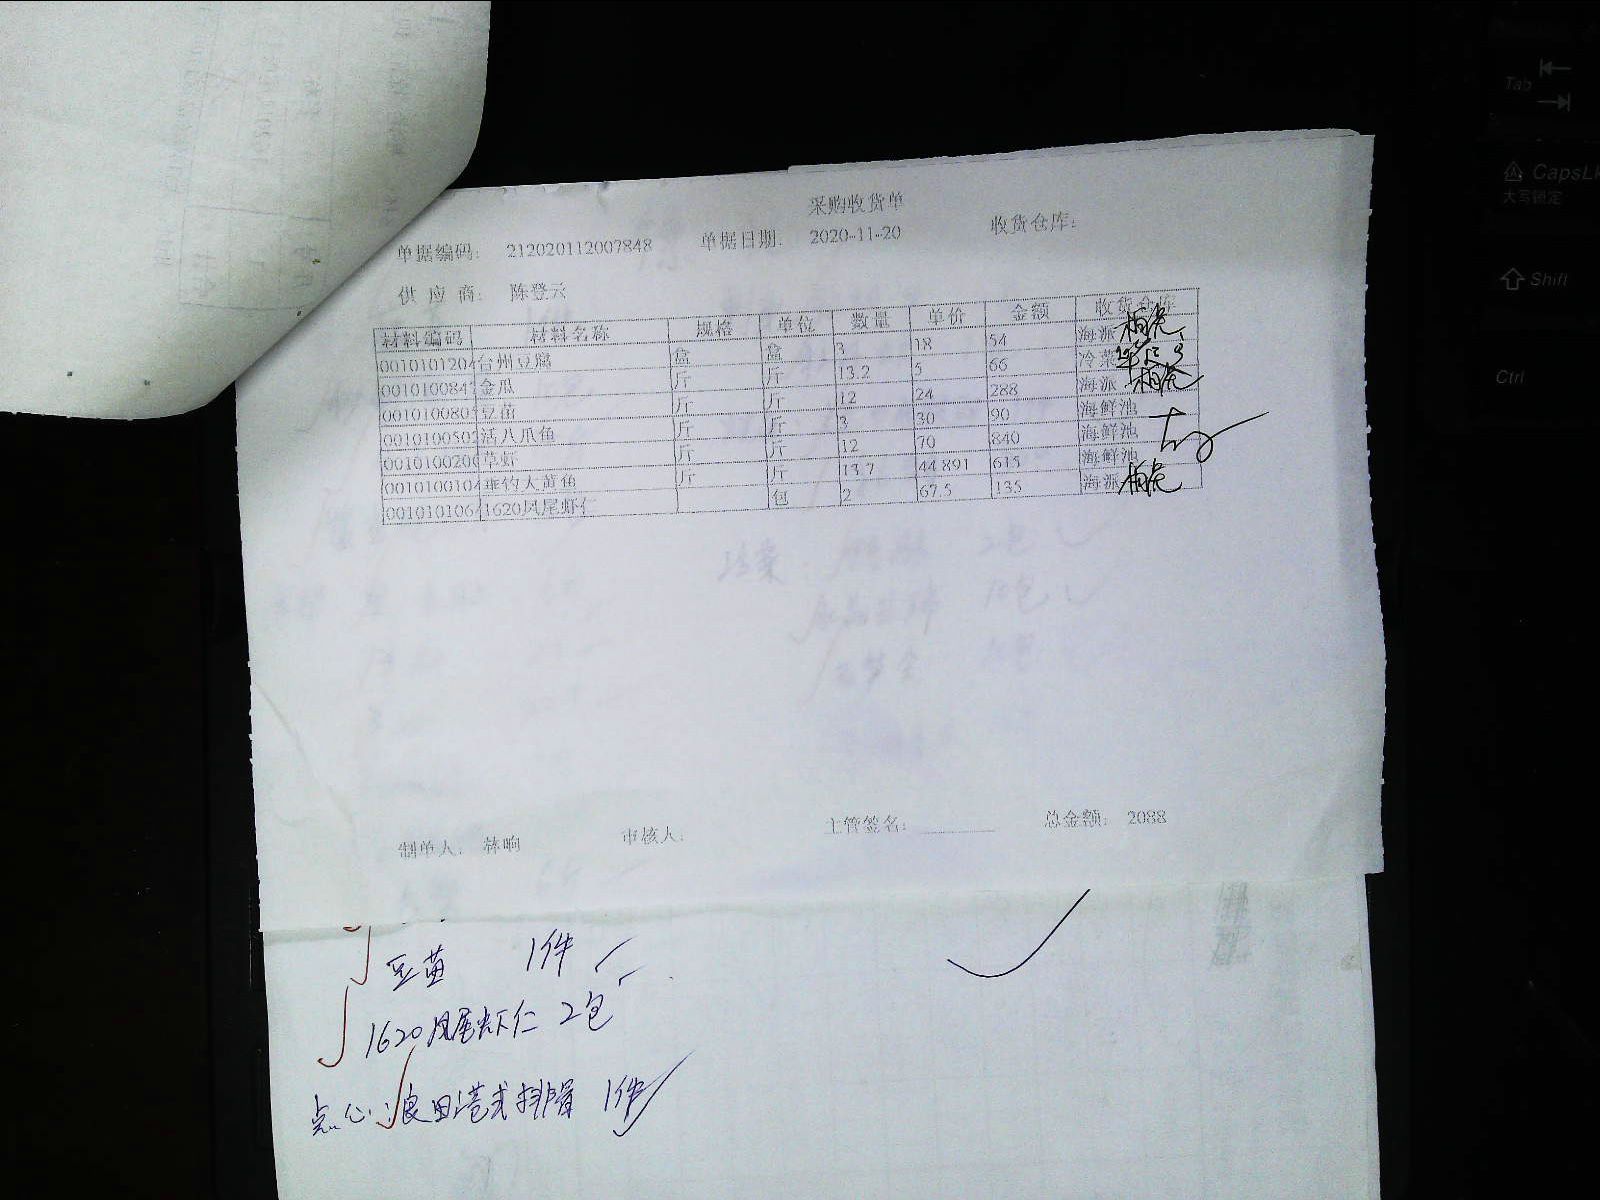 采购收货单
单据编码: 212020112007848 单据日期: 2020-11-20 收货仓库:
供应商: 陈登云
材料编码 材料名称 规格 单位 数量 单价 金额 收货仓库
001010120 台州豆腐 盒 盒 3 18 54 海派
001010084 金瓜 斤 斤 13.2 5 66 冷菜
001010080 豆苗 斤 斤 12 24 288 海派
001010050 活八爪鱼 斤 斤 3 30 90 海鲜池
001010020 草虾 斤 斤 12 70 840 海鲜池
001010010 垂钓大黄鱼 斤 斤 13.7 44.891 615 海鲜池
001010106 1620凤尾虾仁 包 2 67.5 135 海派
制单人: 林响 审核人: 主管签名: 总金额: 2088
豆苗 1件
1620凤尾虾仁 2包
点心: 浪田港式排骨 1件
Tab
CapsLk
大写锁定
Shift
Ctrl